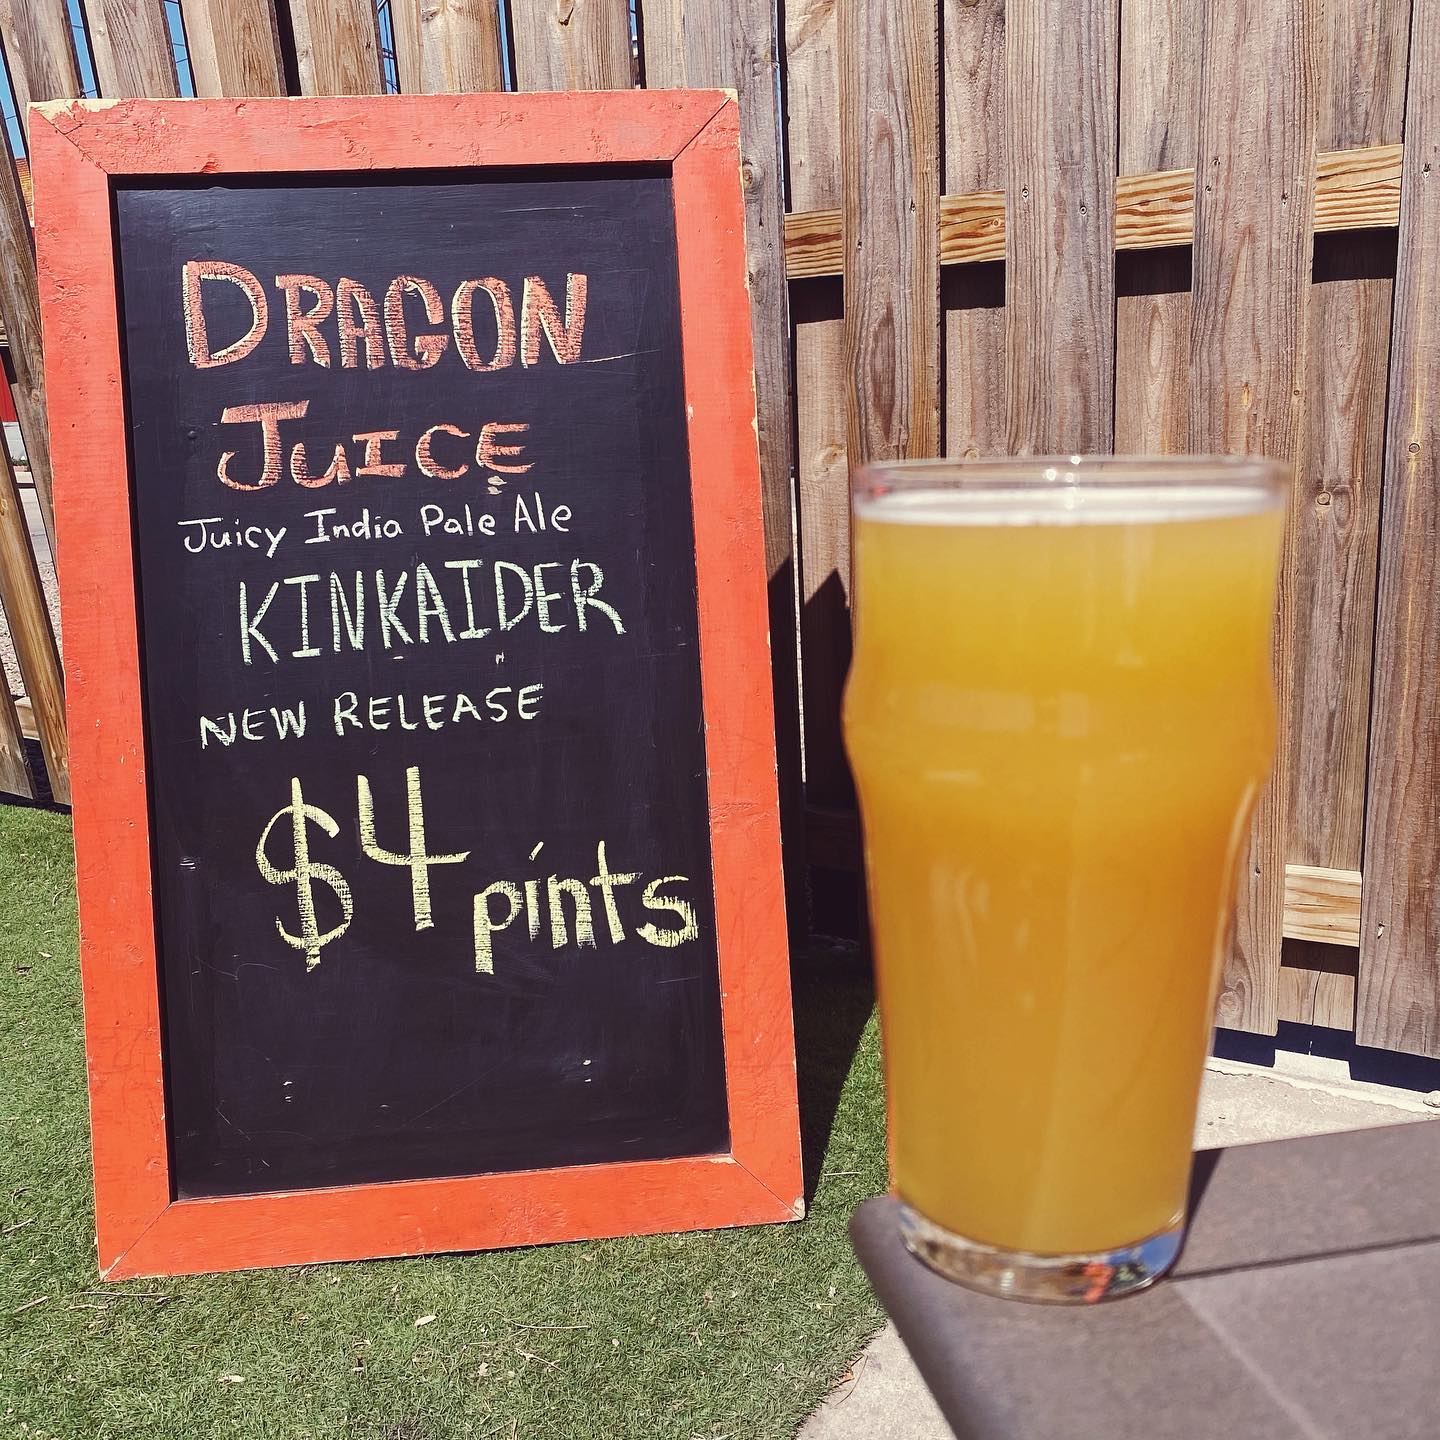 DRAGON
JUICE
Juicy India Pale Ale
KINKAIDER
NEW RELEASE
$4 pints